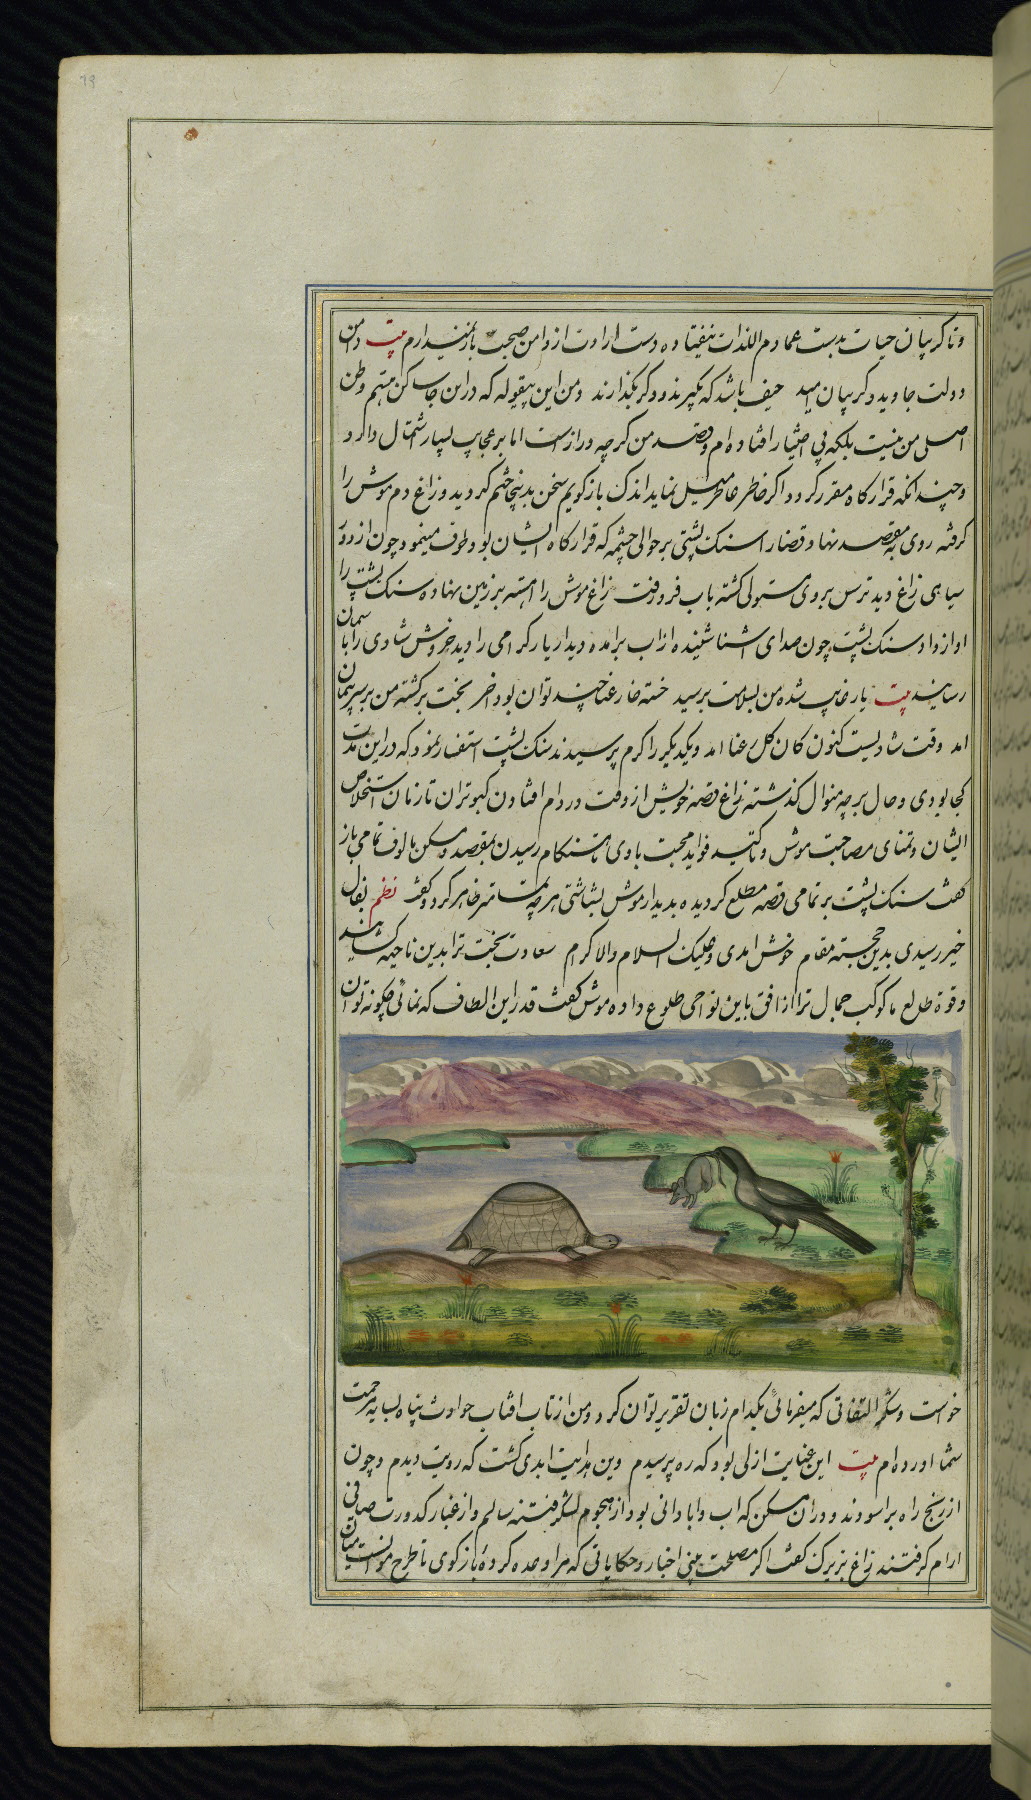 وتا کریبان حیات بدست هادم اللذات نیفتاده دست ارادت از دامن صحبت باز نمیدارم بیت دامن
دولت جاوید و کریبان امید حیف باشد که بکیرند و دکر بکذارند ومن این بیقوله که دراین جا ساکن میهم وطن
اصلی من نیست بلکه بی اختیار افتاده ام وقصه من کرچه درازست اما بر عجایب بسیار اشتمال دارد و
وچندانکه قرارکاه مقرر کردد اکر خاطر عاطر میل نماید اندک بازکویم سخن بدینجا ختم کردید و زاغ دم موش را
کرفته روی بمقصد نهاد وقضارا سنک پشتی بر حوالی چشمه که قرارکاه ایشان بود طوف مینمود چون از دور
سیاهی زاغ دید ترس بر وی مستولی کشته باب فرو رفت زاغ موش را اهسته بر زمین نهاده سنک پشت را
اواز داد سنک پشت چون صدای اشنا شنیده از اب برامده دیدار یار کرامی را دید خروش شادی را باسمان
رسانید بیت یار غایب شده من بسلامت برسید خسته خار عنا چند توان بود اخر بخت برکشته من بر سر پیمان
امد وقت شادیست کنون کان کل رعنا امد ویکدیکر را کرم پرسیدند سنک پشت استفسار نمود که دراین مدت
کجا بودی وحال بر چه منوال کذشته زاغ قصه خویش از وقت در دام افتادن کبوتران تا زمان استخلاص
ایشان وتمنای مصاحبت موش وتاکید قواعد محبت با وی تا هنکام رسیدن بمقصد ومسکن مالوف تمامی باز
کفت سنک پشت بر تمامی قصه مطلع کردیده بدیدار موش بشاشتی هر چه تمامتر ظاهر کرد و کفت نظم بفال
خیر رسیدی بدین خجسته مقام خوش امدی وعلیک السلام والاکرام سعادت بخت ترا بدین ناحیه کشانید
وقوة طالع ما کوکب جمال ترا از افق باین نواحی طلوع داده موش کفت قدر این الطاف که نمائی چکونه توان
خواست وشکر التفاتی که میفرمائی بکدام زبان تقریر توان کرد ومن از تاب افتاب حوادث پناه بسایه مرحمت
شما اورده ام بیت این عنایت ازلی بود که ره پرسیدم وین هدایت ابدی کشت که رویت دیدم وچون
از رنج راه براسودند ودران مسکن که اب وابادانی بود از هجوم لشکر فتنه سالم واز غبار کدورت صافی
ارام کرفتند زاغ بزیرک کفت اکر مصلحت بینی اخبار وحکایاتی که مرا وعده کردهٔ بازکوی تا طرح موانست میان